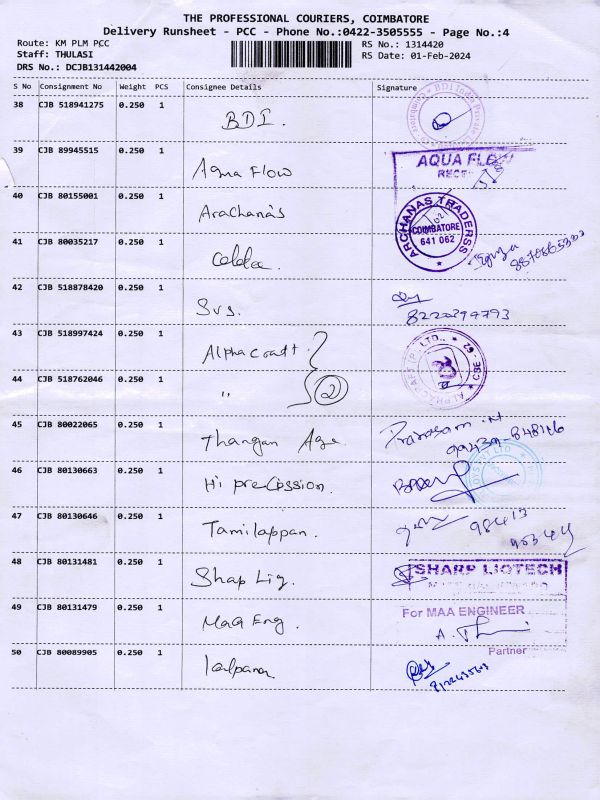 THE PROFESSIONAL COURIERS, COIMBATORE
Delivery Runsheet - PCC - Phone No.:0422-3505555 - Page No.:4
Route: KM PLM PCC
RS No.: 1314420
Staff: THULASI
RS Date: 01-Feb-2024
DRS No.: DCJB131442004
S No Consignment No Weight PCS Consignee Details Signature
38 CJB 518941275 0.250 1 BDI.
39 CJB 89945515 0.250 1 Aqua Flow AQUA FLOW
40 CJB 80155001 0.250 1 Arachana's ARCHANAS TRADERSS
COIMBATORE
641 062
41 CJB 80035217 0.250 1
42 CJB 518878420 0.250 1 Svs.
8220294793
43 CJB 518997424 0.250 1 Alphacraft
44 CJB 518762046 0.250 1 " 2
45 CJB 80022065 0.250 1 Thangam
46 CJB 80130663 0.250 1 Hi precission.
47 CJB 80130646 0.250 1 Tamilappan. 98413
48 CJB 80131481 0.250 1 Shap Lig. SHARP LIQTECH
49 CJB 80131479 0.250 1 Maa Eng. For MAA ENGINEER
Partner
50 CJB 80089905 0.250 1 Kalpana